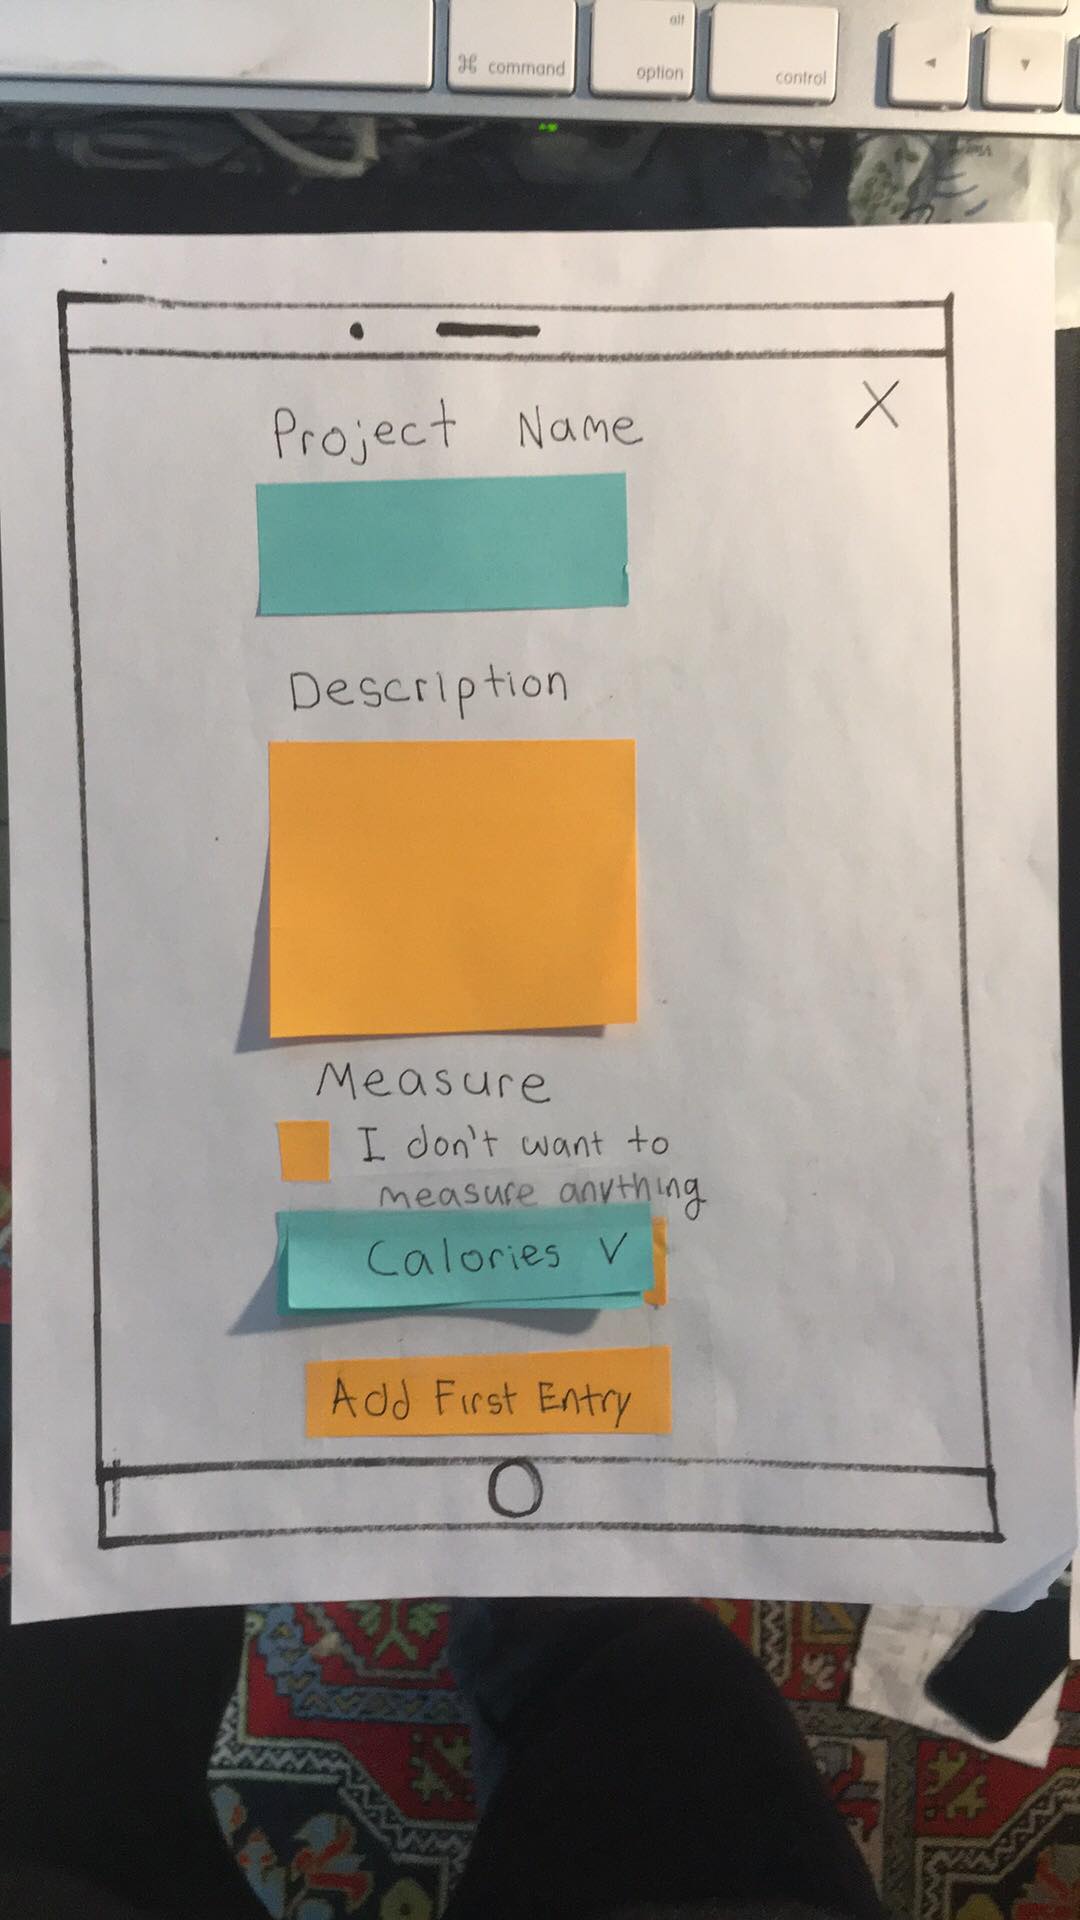 ⌘ command
alt
option
control
◄
▼
X
Project Name
Description
Measure
I don't want to
measure anything
Calories V
Add First Entry